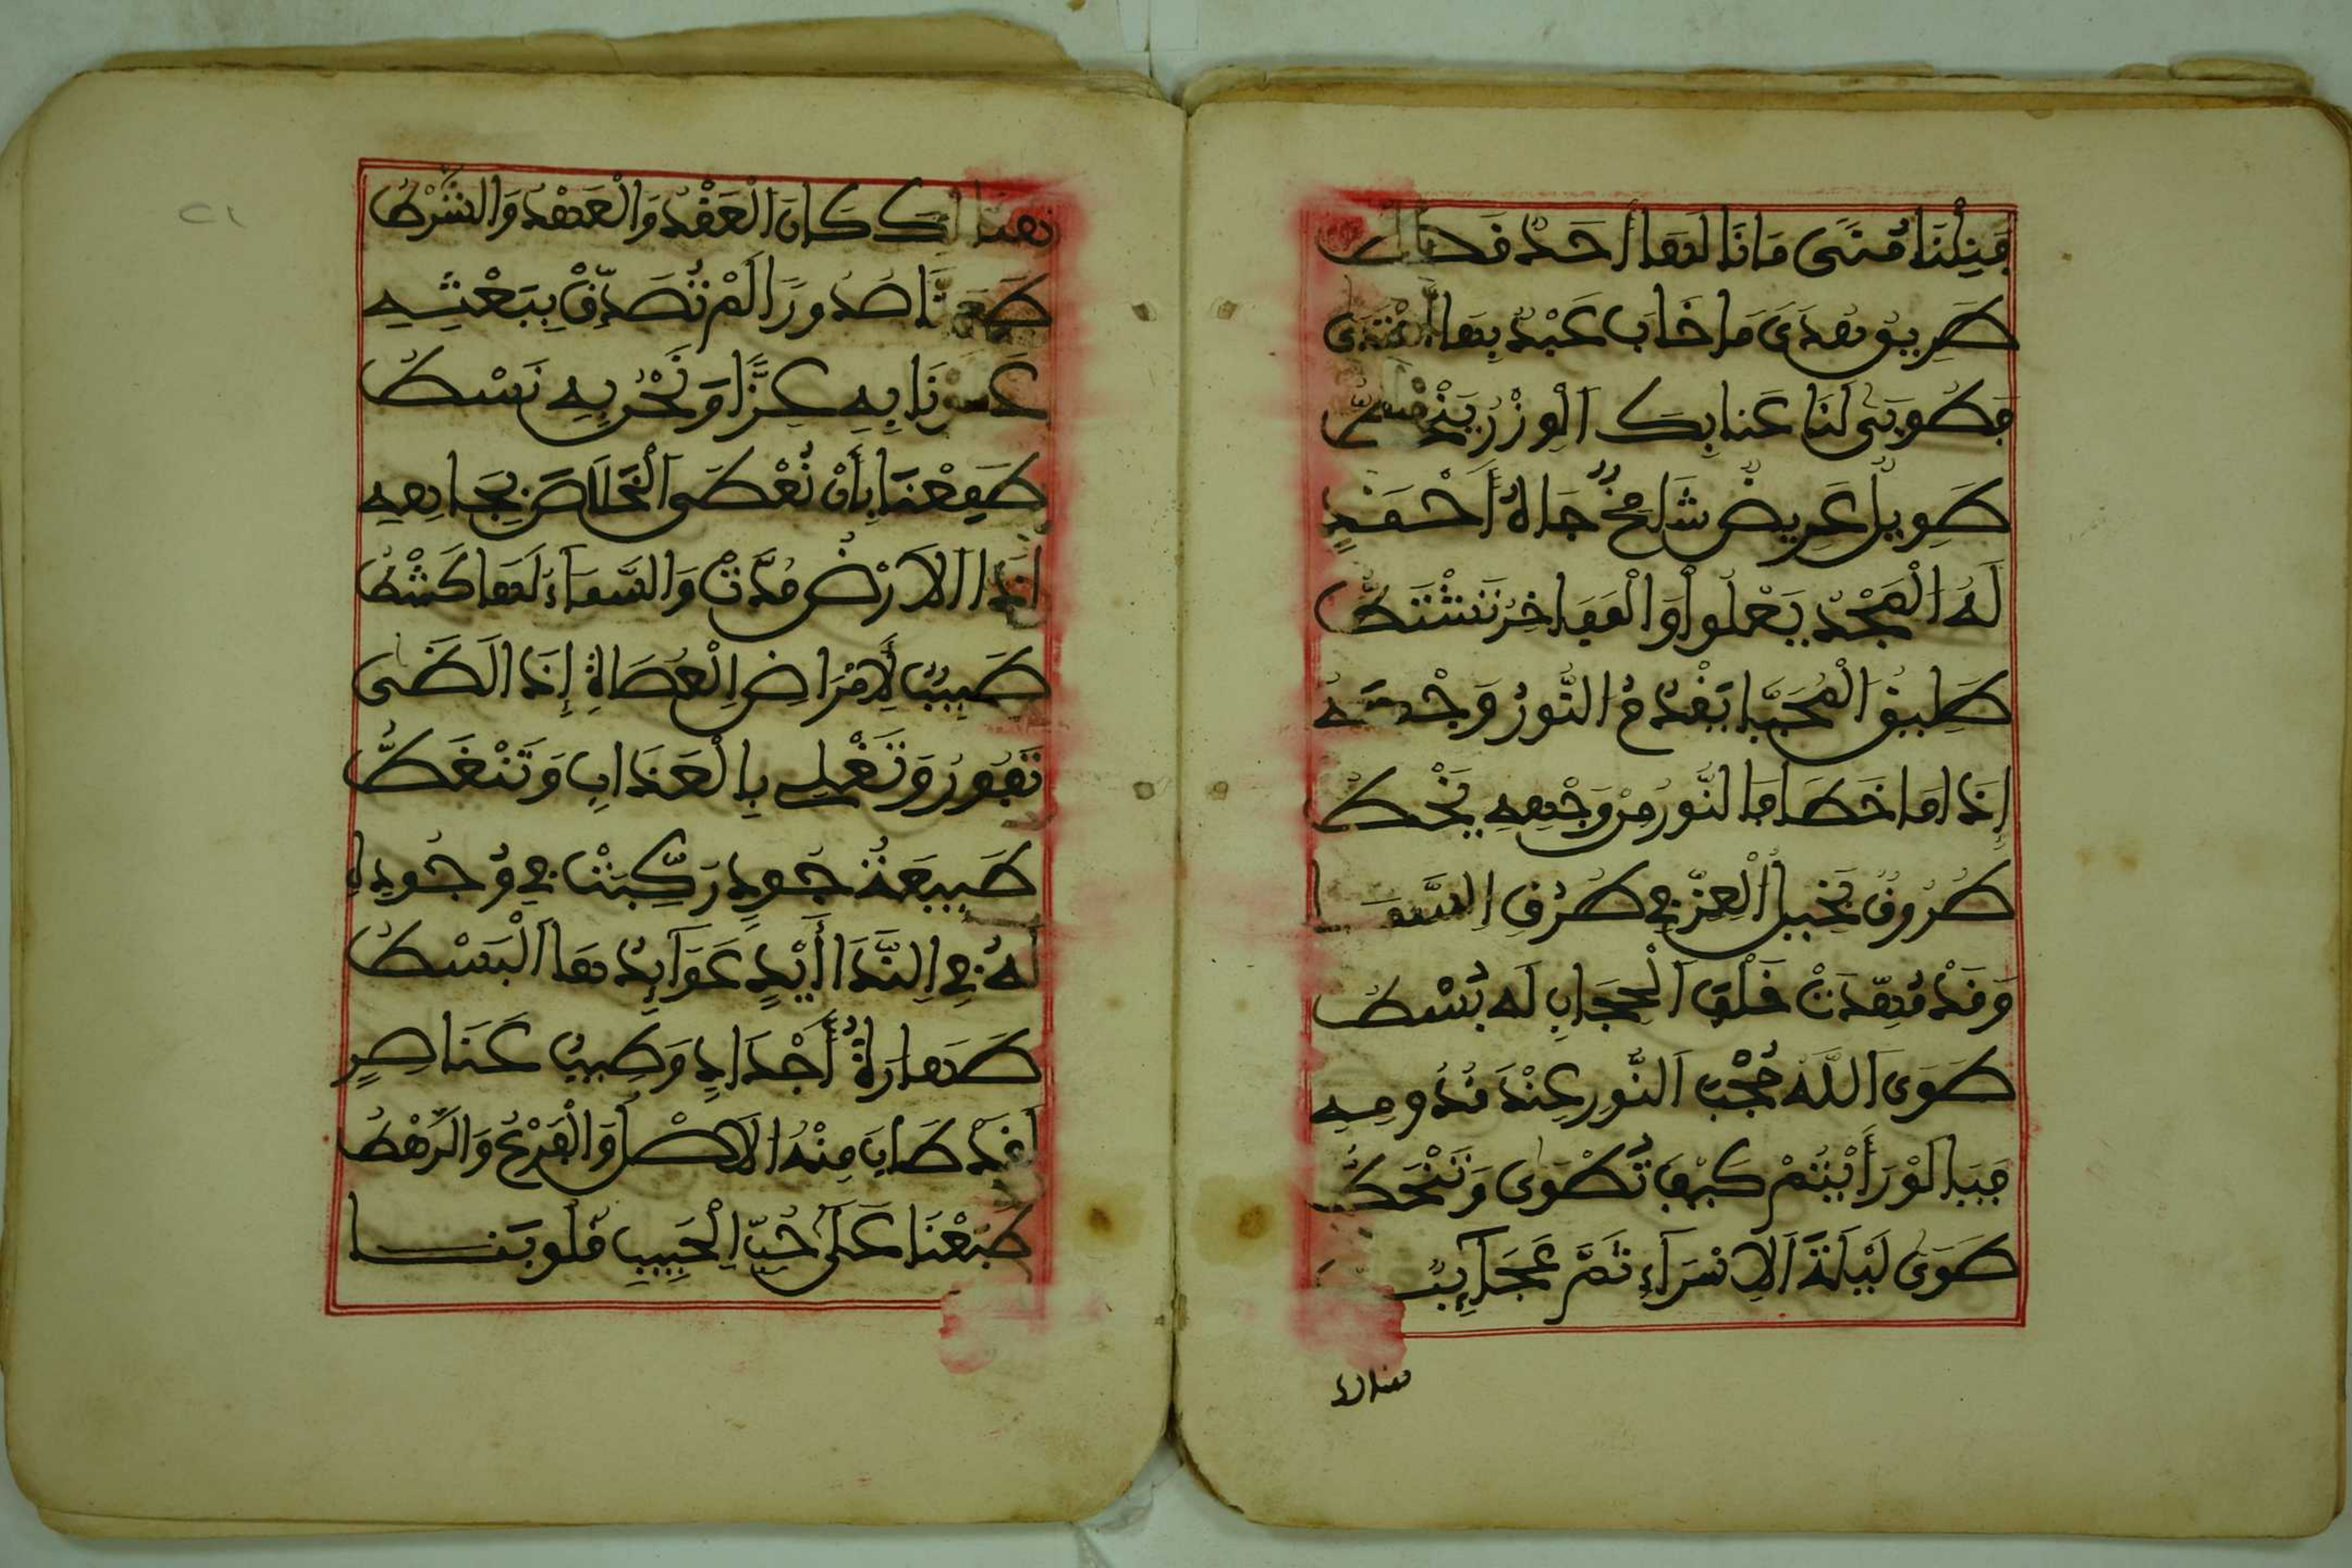 فنلنا منى ما نالها أحد قط
طريق هدى ما خاب عبد بها اهتدى
فطوبى لنا عنا بك الوزر ينحط
طويل عريض شامخ جاه أحمد
له المجد يعلوا والمفاخر تشتط
طليق المحيا يقدم النور وجهه
إذا ما خطا فالنور من وجهه يخط
طروق بخيل العز في طرق السما
وقد مهدت خلف الحجاب له بسط
طوى الله حجب النور عند قدومه
فبالو رأيتم كيف تطوى وتنحط
طوى ليلة الاسراء ثم عجائب
هنالك كان العقد والعهد والشرط
صدورا لم تصدق ببعثه
به عزا ونحن به نسط
طمعنا بأن نعطى الخلاص بجاهه
إذا الارض مدت والسماء لها كشط
طبيب لامراض العصاة إذا لظى
تفور وتغلي بالعذاب وتنغط
طبيعة جود ركبت في وجوده
له في الندا أيد عوائدها البسط
طهارة أجداد وطيب عناصر
لقد طاب منه الاصل والفرع والرهط
طبعنا على حب الحبيب قلوبنا